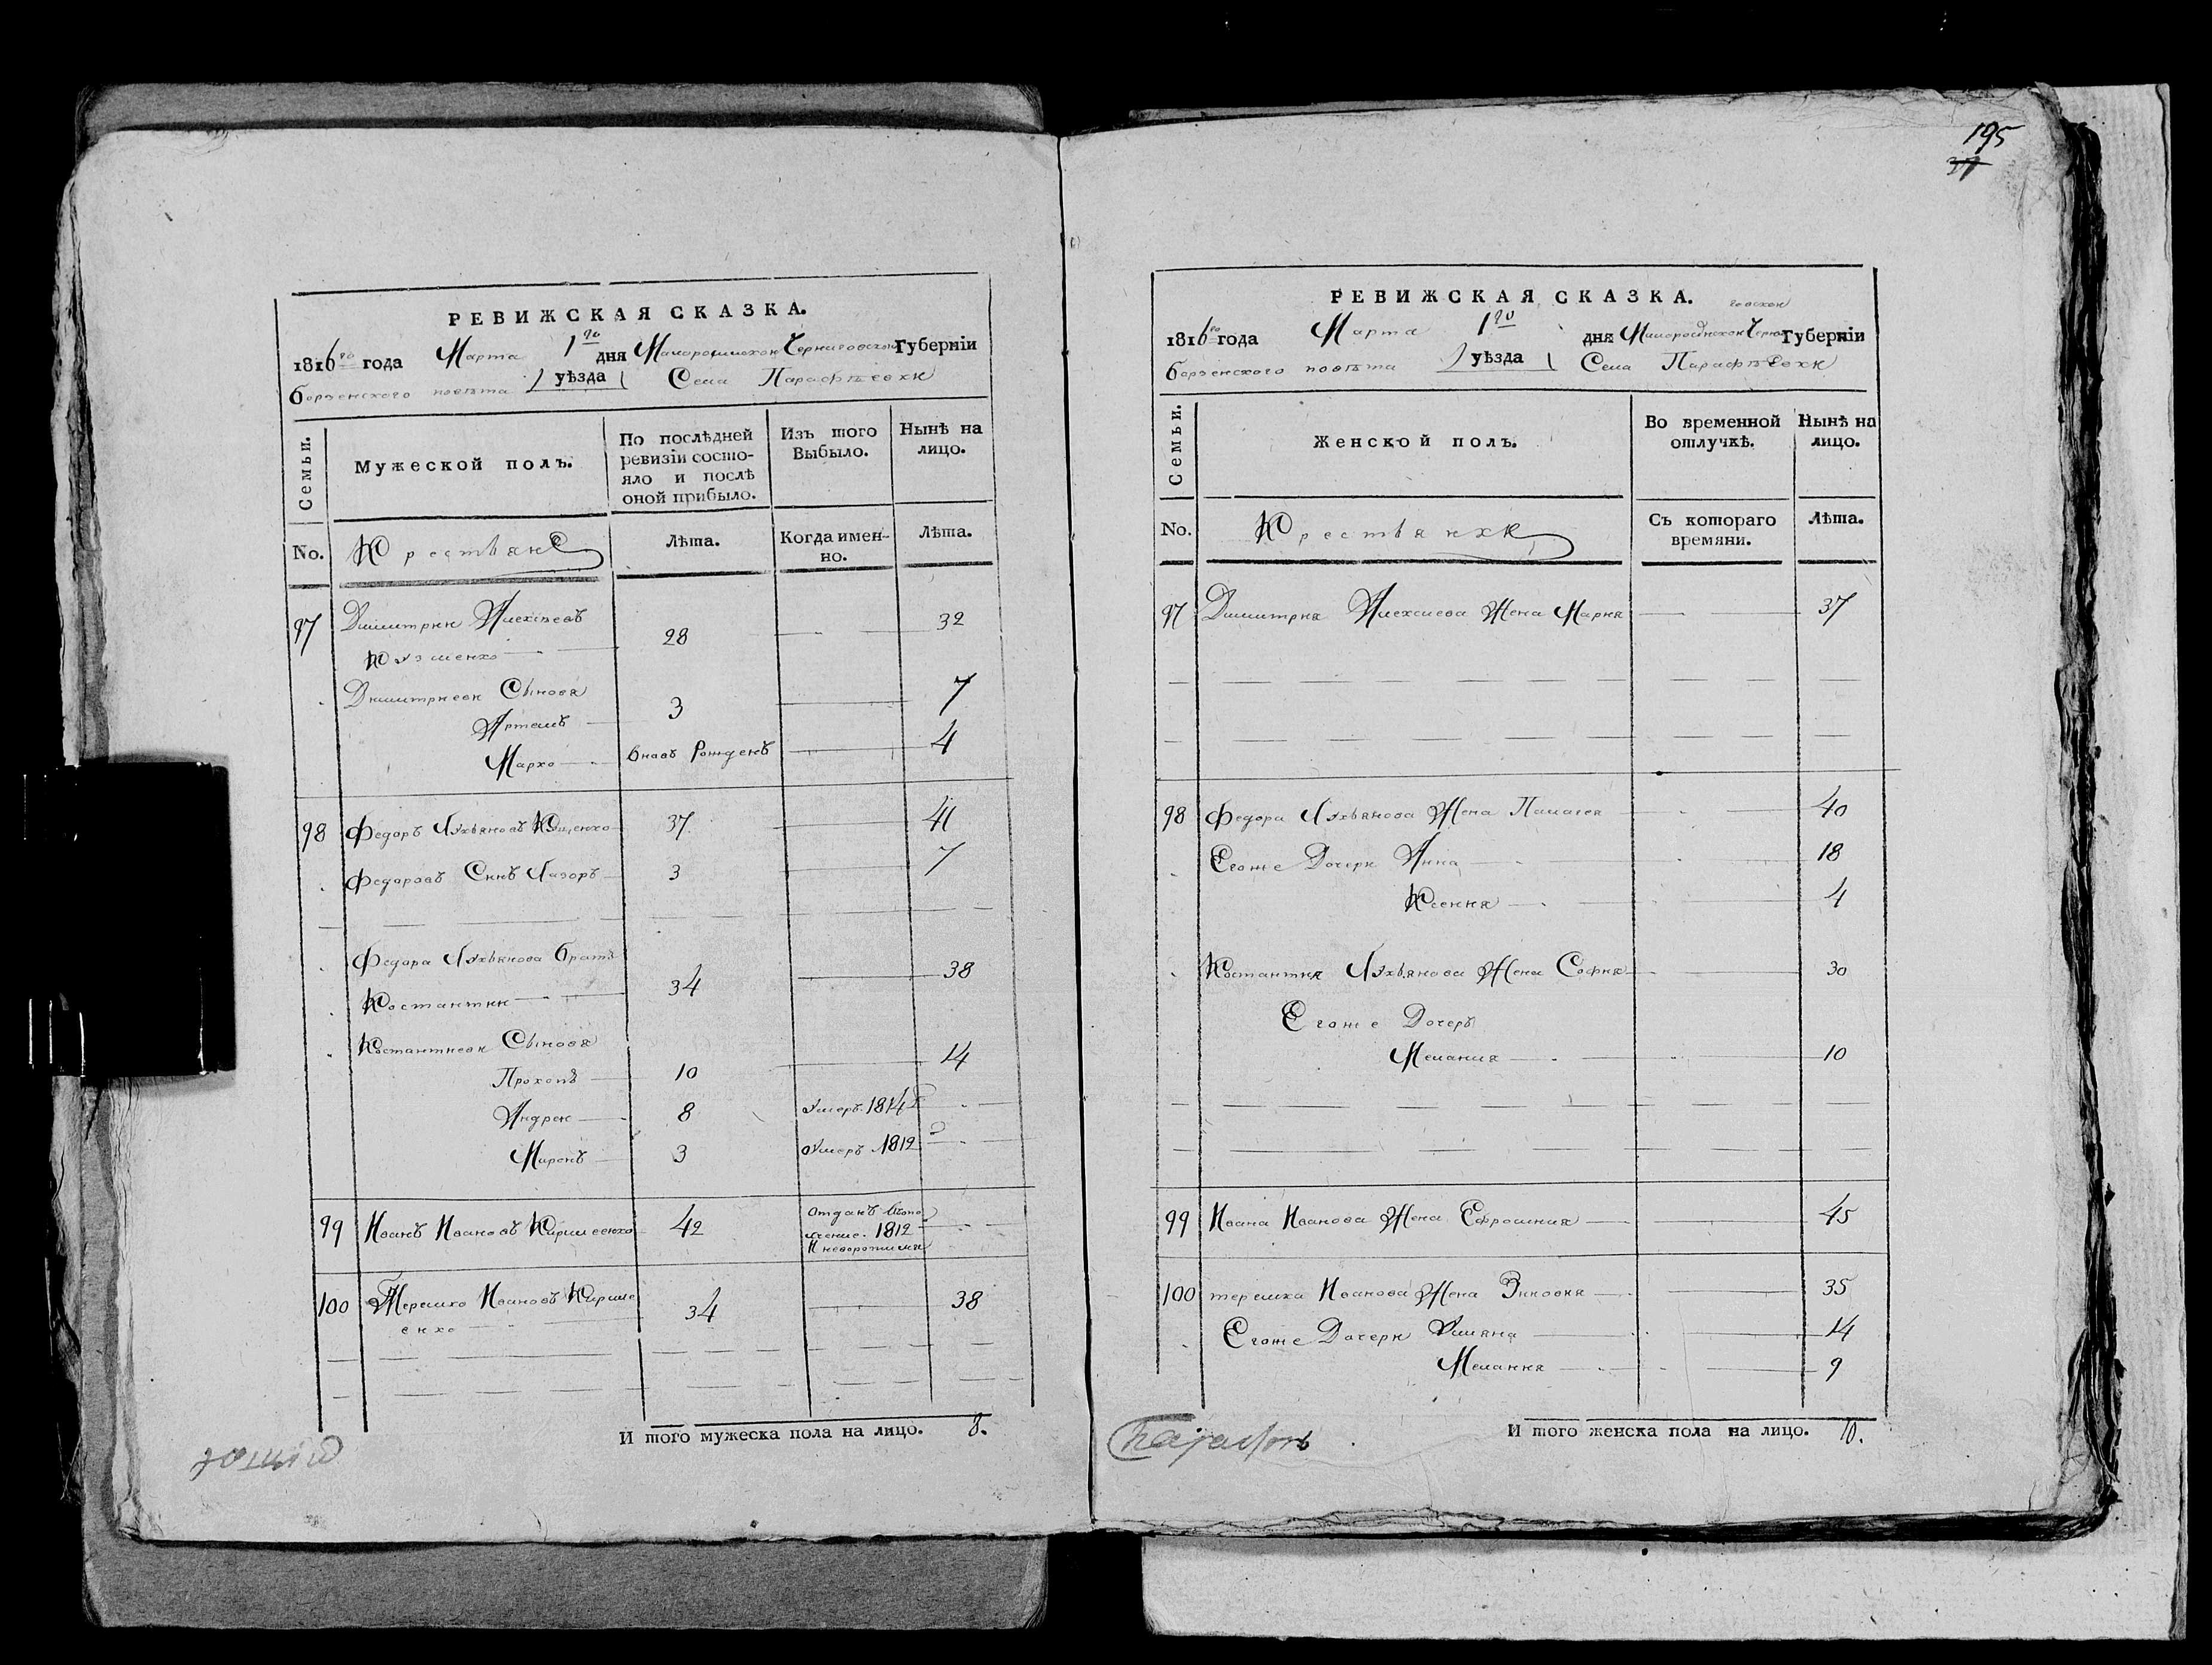 РЕВИЖСКАЯ СКАЗКА.
1816го года Марта 1го дня Малоросийской Черниговской Губернїи
Борзенского повѣта уѣзда Села Парафѣевки
Семьи.
Мужеской полъ.
По послѣдней ревизїи состо-
яло и послѣ
оной прибыло.
Изъ того
Выбыло.
Нынѣ на
лицо.
No.
Крестьяне
Лѣта.
Когда имен-
но.
Лѣта.
97 Димитрий Алексѣевъ
Кузменко 28 32
Димитриеви Сыновя
Артемъ 3 7
Марко вновь Рожденъ 4
98 Федоръ Лукьяновъ Ющенко 37 41
Федоровъ Синъ Лазоръ 3 7
Федора Лукьянова братъ
Костантин 34 38
Костантиеви Сыновя
Прокопъ 10 14
Андрей 8 Умеръ 1814
Миронъ 3 Умеръ 1812
99 Иванъ Ивановъ Кириеенко 42 отданъ
1812
100 Терешко Ивановъ Кирие
енко 34 38
И того мужеска пола на лицо. 8.
195
37
РЕВИЖСКАЯ СКАЗКА.
1816го года Марта 1го дня Малоросийской Черниговской Губернїи
Борзенского повѣта уѣзда Села Парафѣевки
Семьи.
Женской полъ.
Во временной
отлучкѣ.
Нынѣ на
лицо.
No.
Крестьянки
Съ котораго
времяни.
Лѣта.
97 Димитрия Алексиева Жена Мария 37
98 Федора Лукьянова Жена Палагея 40
Егоже Дочери Анна 18
Ксения 4
Костантия Лукьянова Жена София 30
Егоже Дочеръ
Мелания 10
99 Ивана Иванова Жена Ефросиния 45
100 терешка Иванова Жена Зиновия 35
Егоже Дочери Уляна 14
Мелания 9
И того женска пола на лицо. 10.